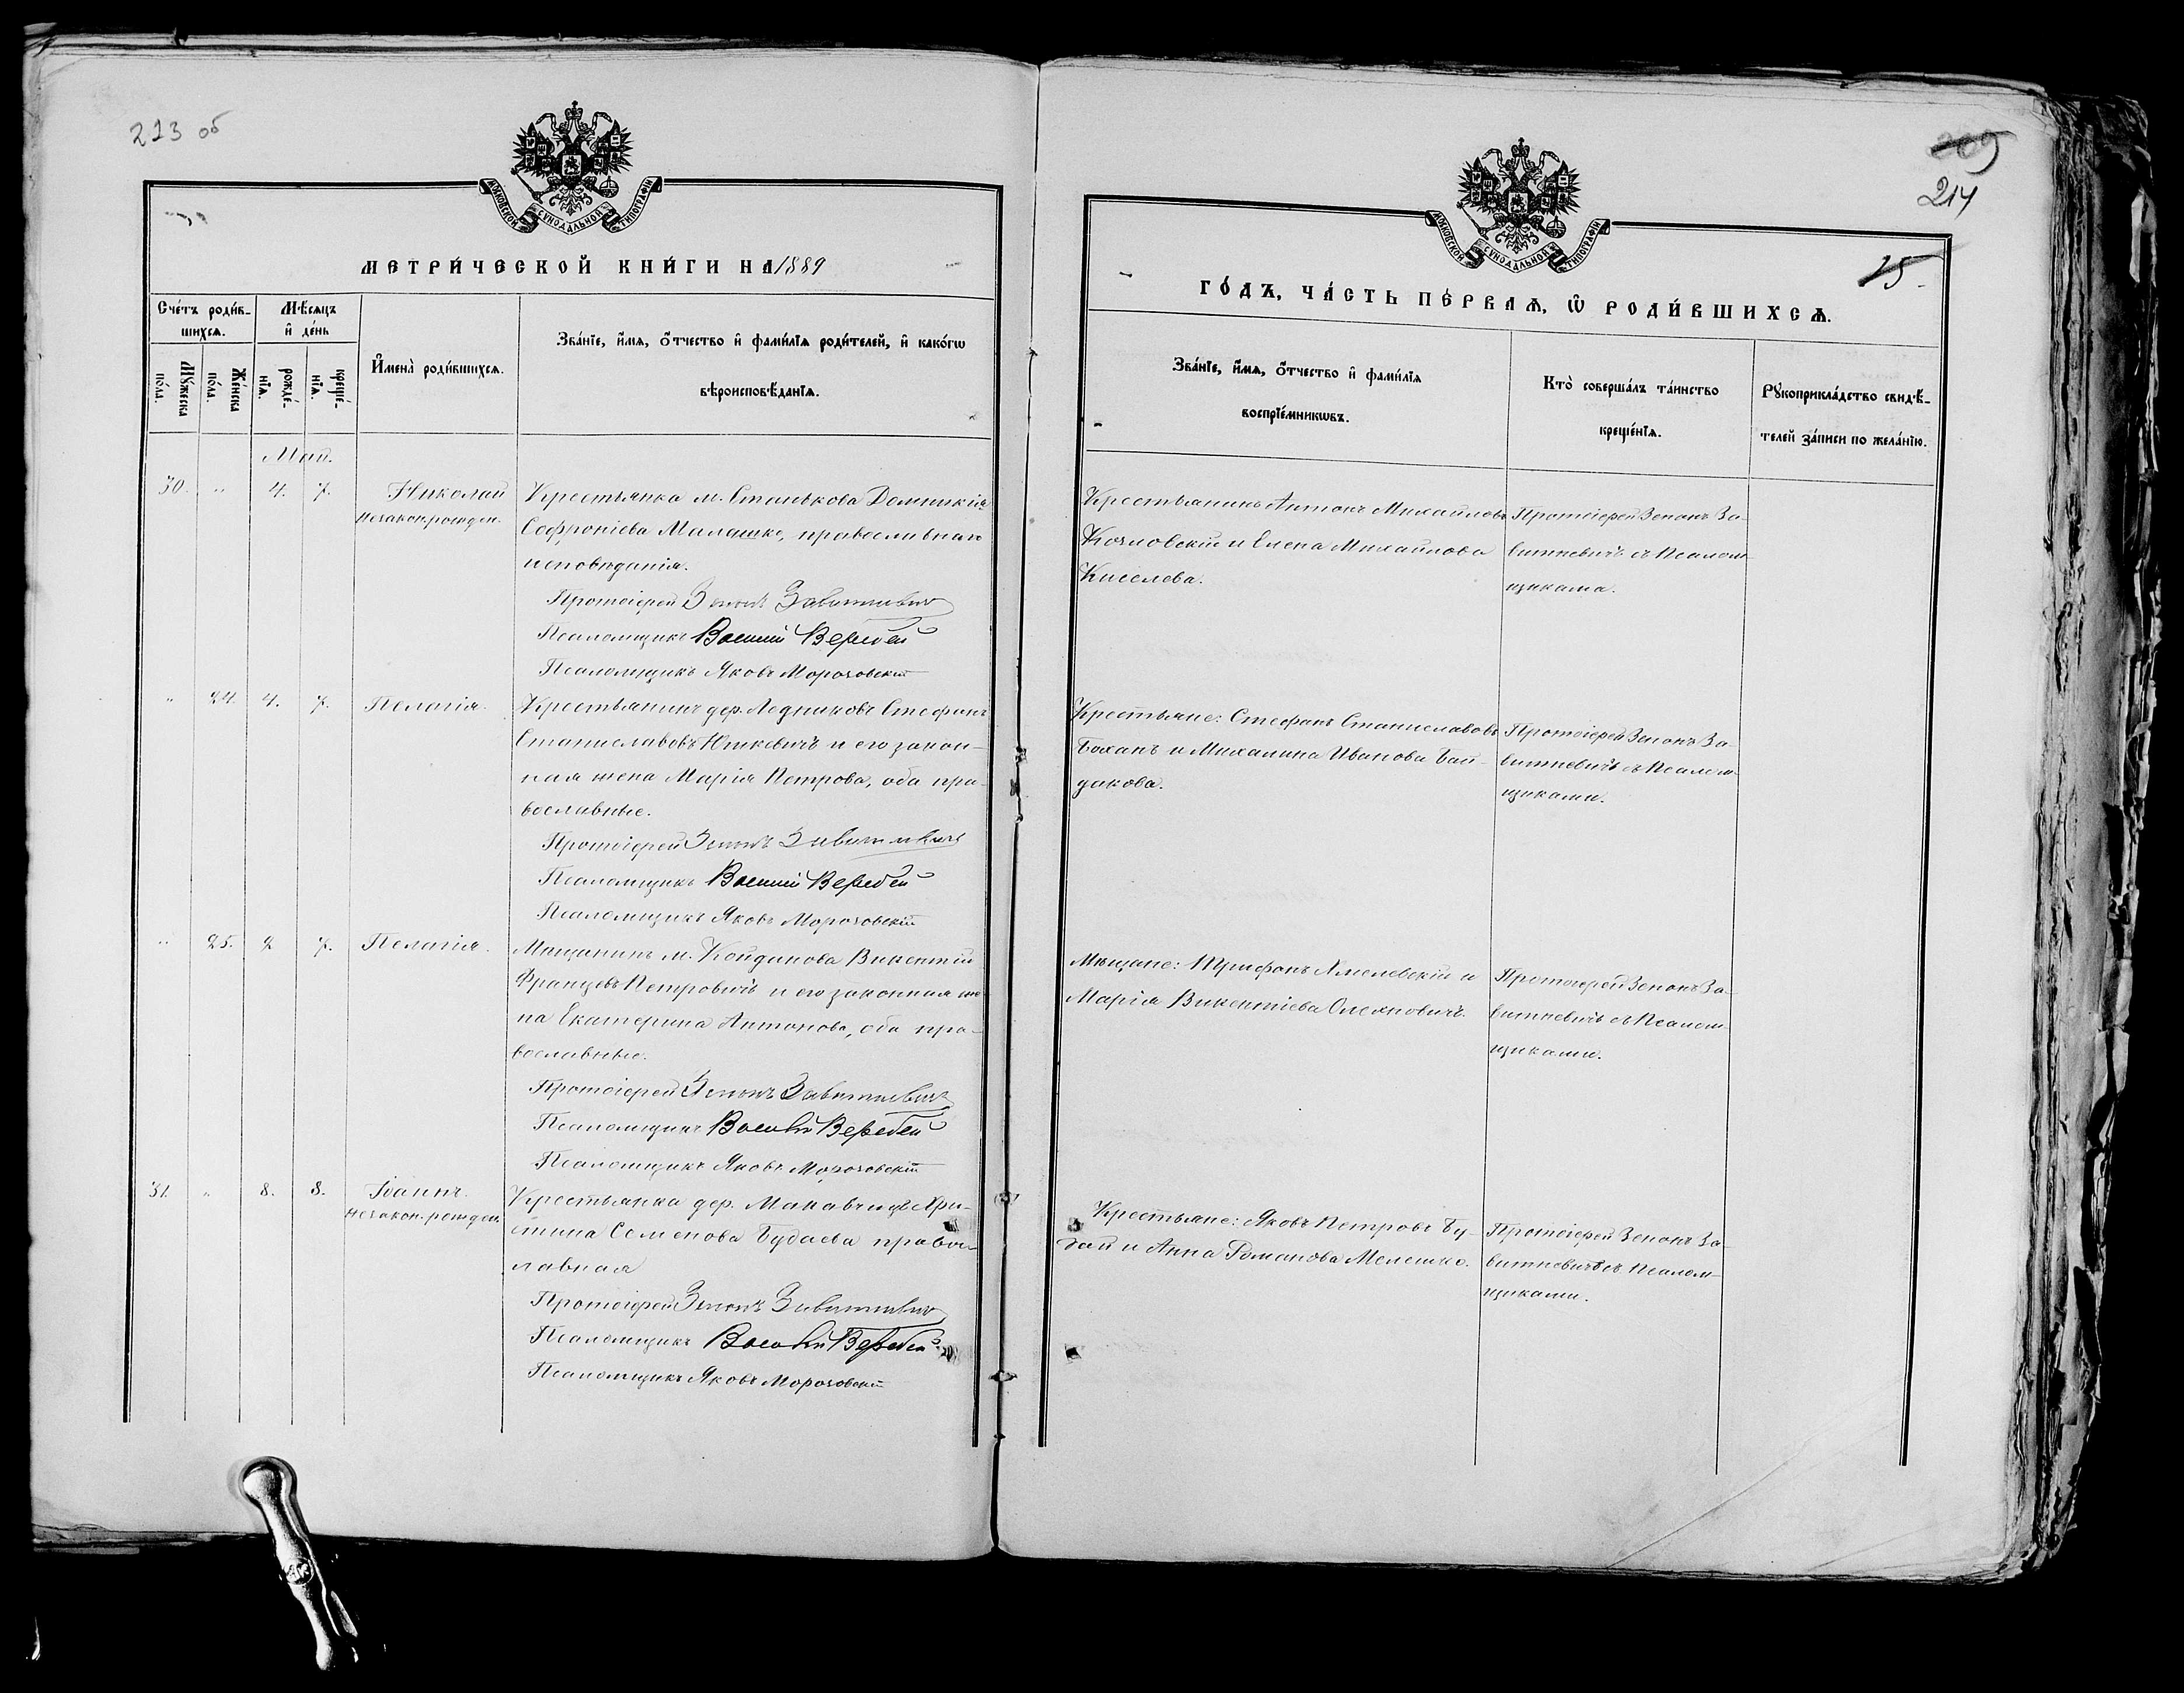 213 об
МОСКОВСКОЙ СѴНОДАЛЬНОЙ ТИПОГРАФІИ
МЕТРИ́ЧЕСКОЙ КНИ́ГИ НА 1889
Сче́тъ роди́в-
шихся.
Мѣ́сяцъ
и҆ де́нь
Мꙋ́жеска
по́ла.
Же́нска
по́ла.
рожде́-
нїѧ.
креще́-
нїѧ.
И҆мена̀ роди́вшихсѧ.
Зва́нїе, и҆́мѧ, ѻ҆́тчество и҆ фами́лїѧ роди́телей, и҆ како́гѡ
вѣроисповѣ́данїѧ.
Май.
30. " 4. 7. Николай
незакон. рожден.
Крестьянка м. Станькова Домникія
Софроніева Малашко, православнаго
исповѣданія.
Протоіерей Зенонъ Завитневичъ
Псаломщикъ Василій Веребей
Псаломщикъ Яковъ Морозовскій
" 24. 4. 7. Пелагія.
Крестьянинъ дер. Ледниковъ Стефанъ
Станиславовъ Юшкевичъ и его закон-
ная жена Марія Петрова, оба пра-
вославные.
Протоіерей Зенонъ Завитневичъ
Псаломщикъ Василій Веребей
Псаломщикъ Яковъ Морозовскій
" 25. 2 7. Пелагія.
Мѣщанинъ м. Койданова Викентій
Францевъ Петровичъ и его законная же-
на Екатерина Антонова, оба пра-
вославные.
Протоіерей Зенонъ Завитневичъ
Псаломщикъ Василій Веребей
Псаломщикъ Яковъ Морозовскій
31. " 8. 8. Іоаннъ.
незакон. рожден.
Крестьянка дер. Макавчицъ Хри-
стина Семенова Будаева правос-
лавная
Протоіерей Зенонъ Завитневичъ
Псаломщикъ Василій Веребей
Псаломщикъ Яковъ Морозовскій
209
214
15.
МОСКОВСКОЙ СѴНОДАЛЬНОЙ ТИПОГРАФІИ
ГО́ДЪ, ЧА́СТЬ ПЕ́РВАѦ, Ѡ҆ РОДИ́ВШИХСѦ.
Зва́нїе, и҆́мѧ, ѻ҆́тчество и҆ фами́лїѧ
воспрїе́мникѡвъ.
Кто̀ соверша́лъ та́инство
креще́нїѧ.
Рꙋкоприкла́дство свидѣ́-
телей за́писи по жела́нїю.
Крестьянинъ Антонъ Михайловъ
Козловскій и Елена Михайлова
Киселева.
Протоіерей Зенонъ За-
витневичъ съ Псалом-
щиками.
Крестьяне: Стефанъ Станиславовъ
Боханъ и Михалина Иванова Бай-
дакова.
Протоіерей Зенонъ За-
витневичъ съ Псалом-
щиками.
Мѣщане: Трифонъ Хмелевскій и
Марія Викентіева Олехновичъ.
Протоіерей Зенонъ За-
витневичъ съ Псалом-
щиками.
Крестьяне: Яковъ Петровъ Бу-
дай и Анна Романова Мелешко.
Протоіерей Зенонъ За-
витневичъ съ Псалом-
щиками.